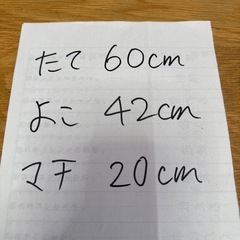 たて 60cm
よこ 42cm
マチ 20cm